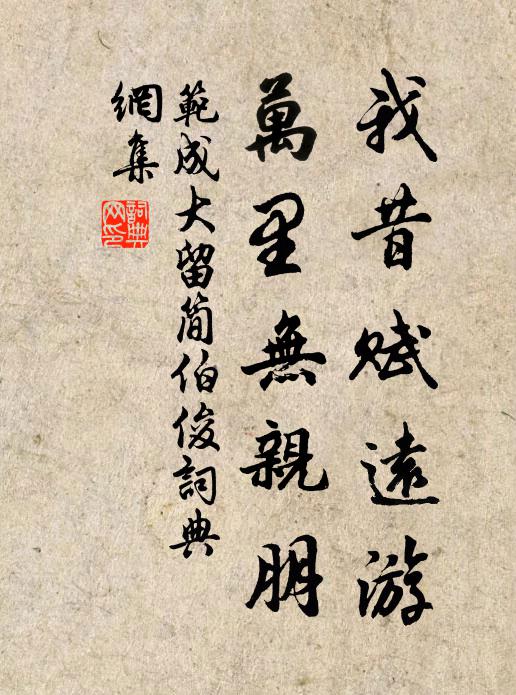 我昔賦遠游
萬里無親朋
範成大留簡伯俊詞典
網集
詞典網印